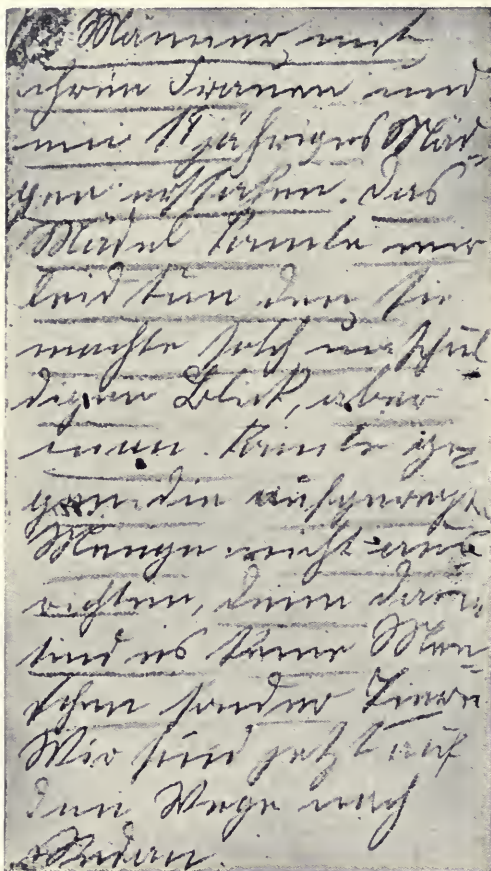 Männer mit
ihren Frauen und
ein 18 jähriges Mäd-
gen erstachen. Das
Mädel konte mir
leid tun den sie
machte solch unschul
digen Blick, aber
man konte ge-
gen die aufgeregte
Menge nicht aus
richten, denn dann
sind es keine Men
schen sonder Tiere
Wir sind jetzt auf
den Wege nach
Sedan.